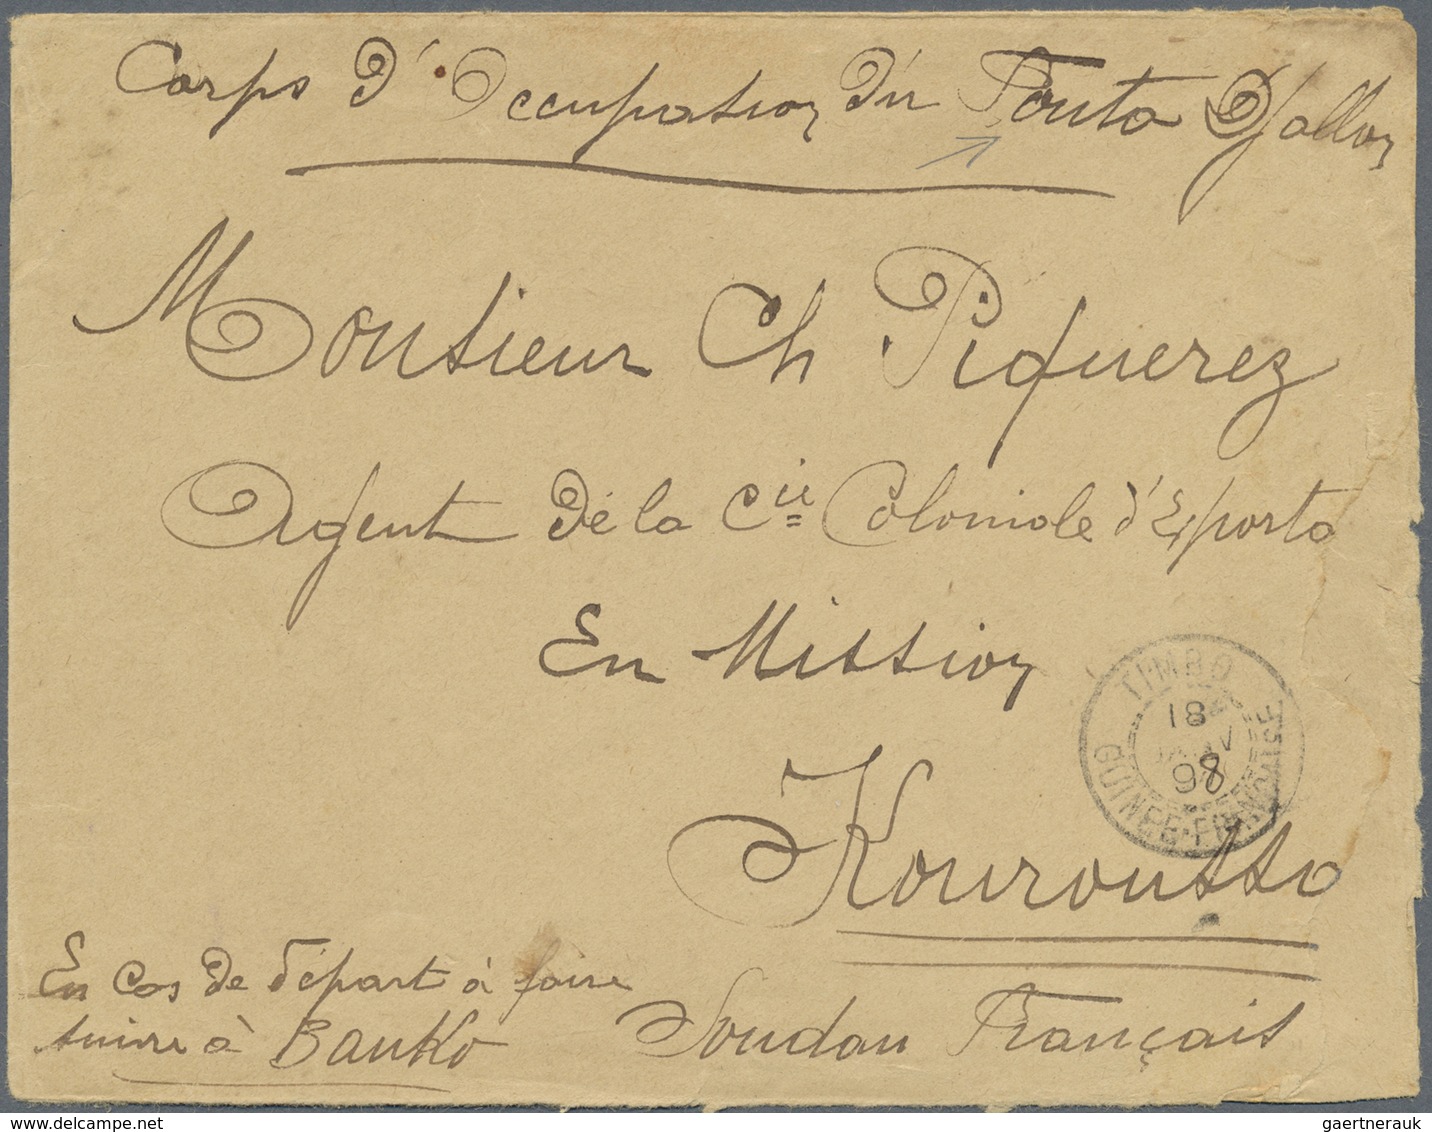 Corps d'Occupation du Fouta Djallon
Monsieur Ch Piquerez
Agent de la Cie Coloniale d'Exporto
En Mission
TIMBO
18
JANV
98
GUINEE-FRANCAISE
Kouroussa
En cas de départ à faire
suivre à Banko
Soudan Français
gaertnerauk / www.delcampe.net